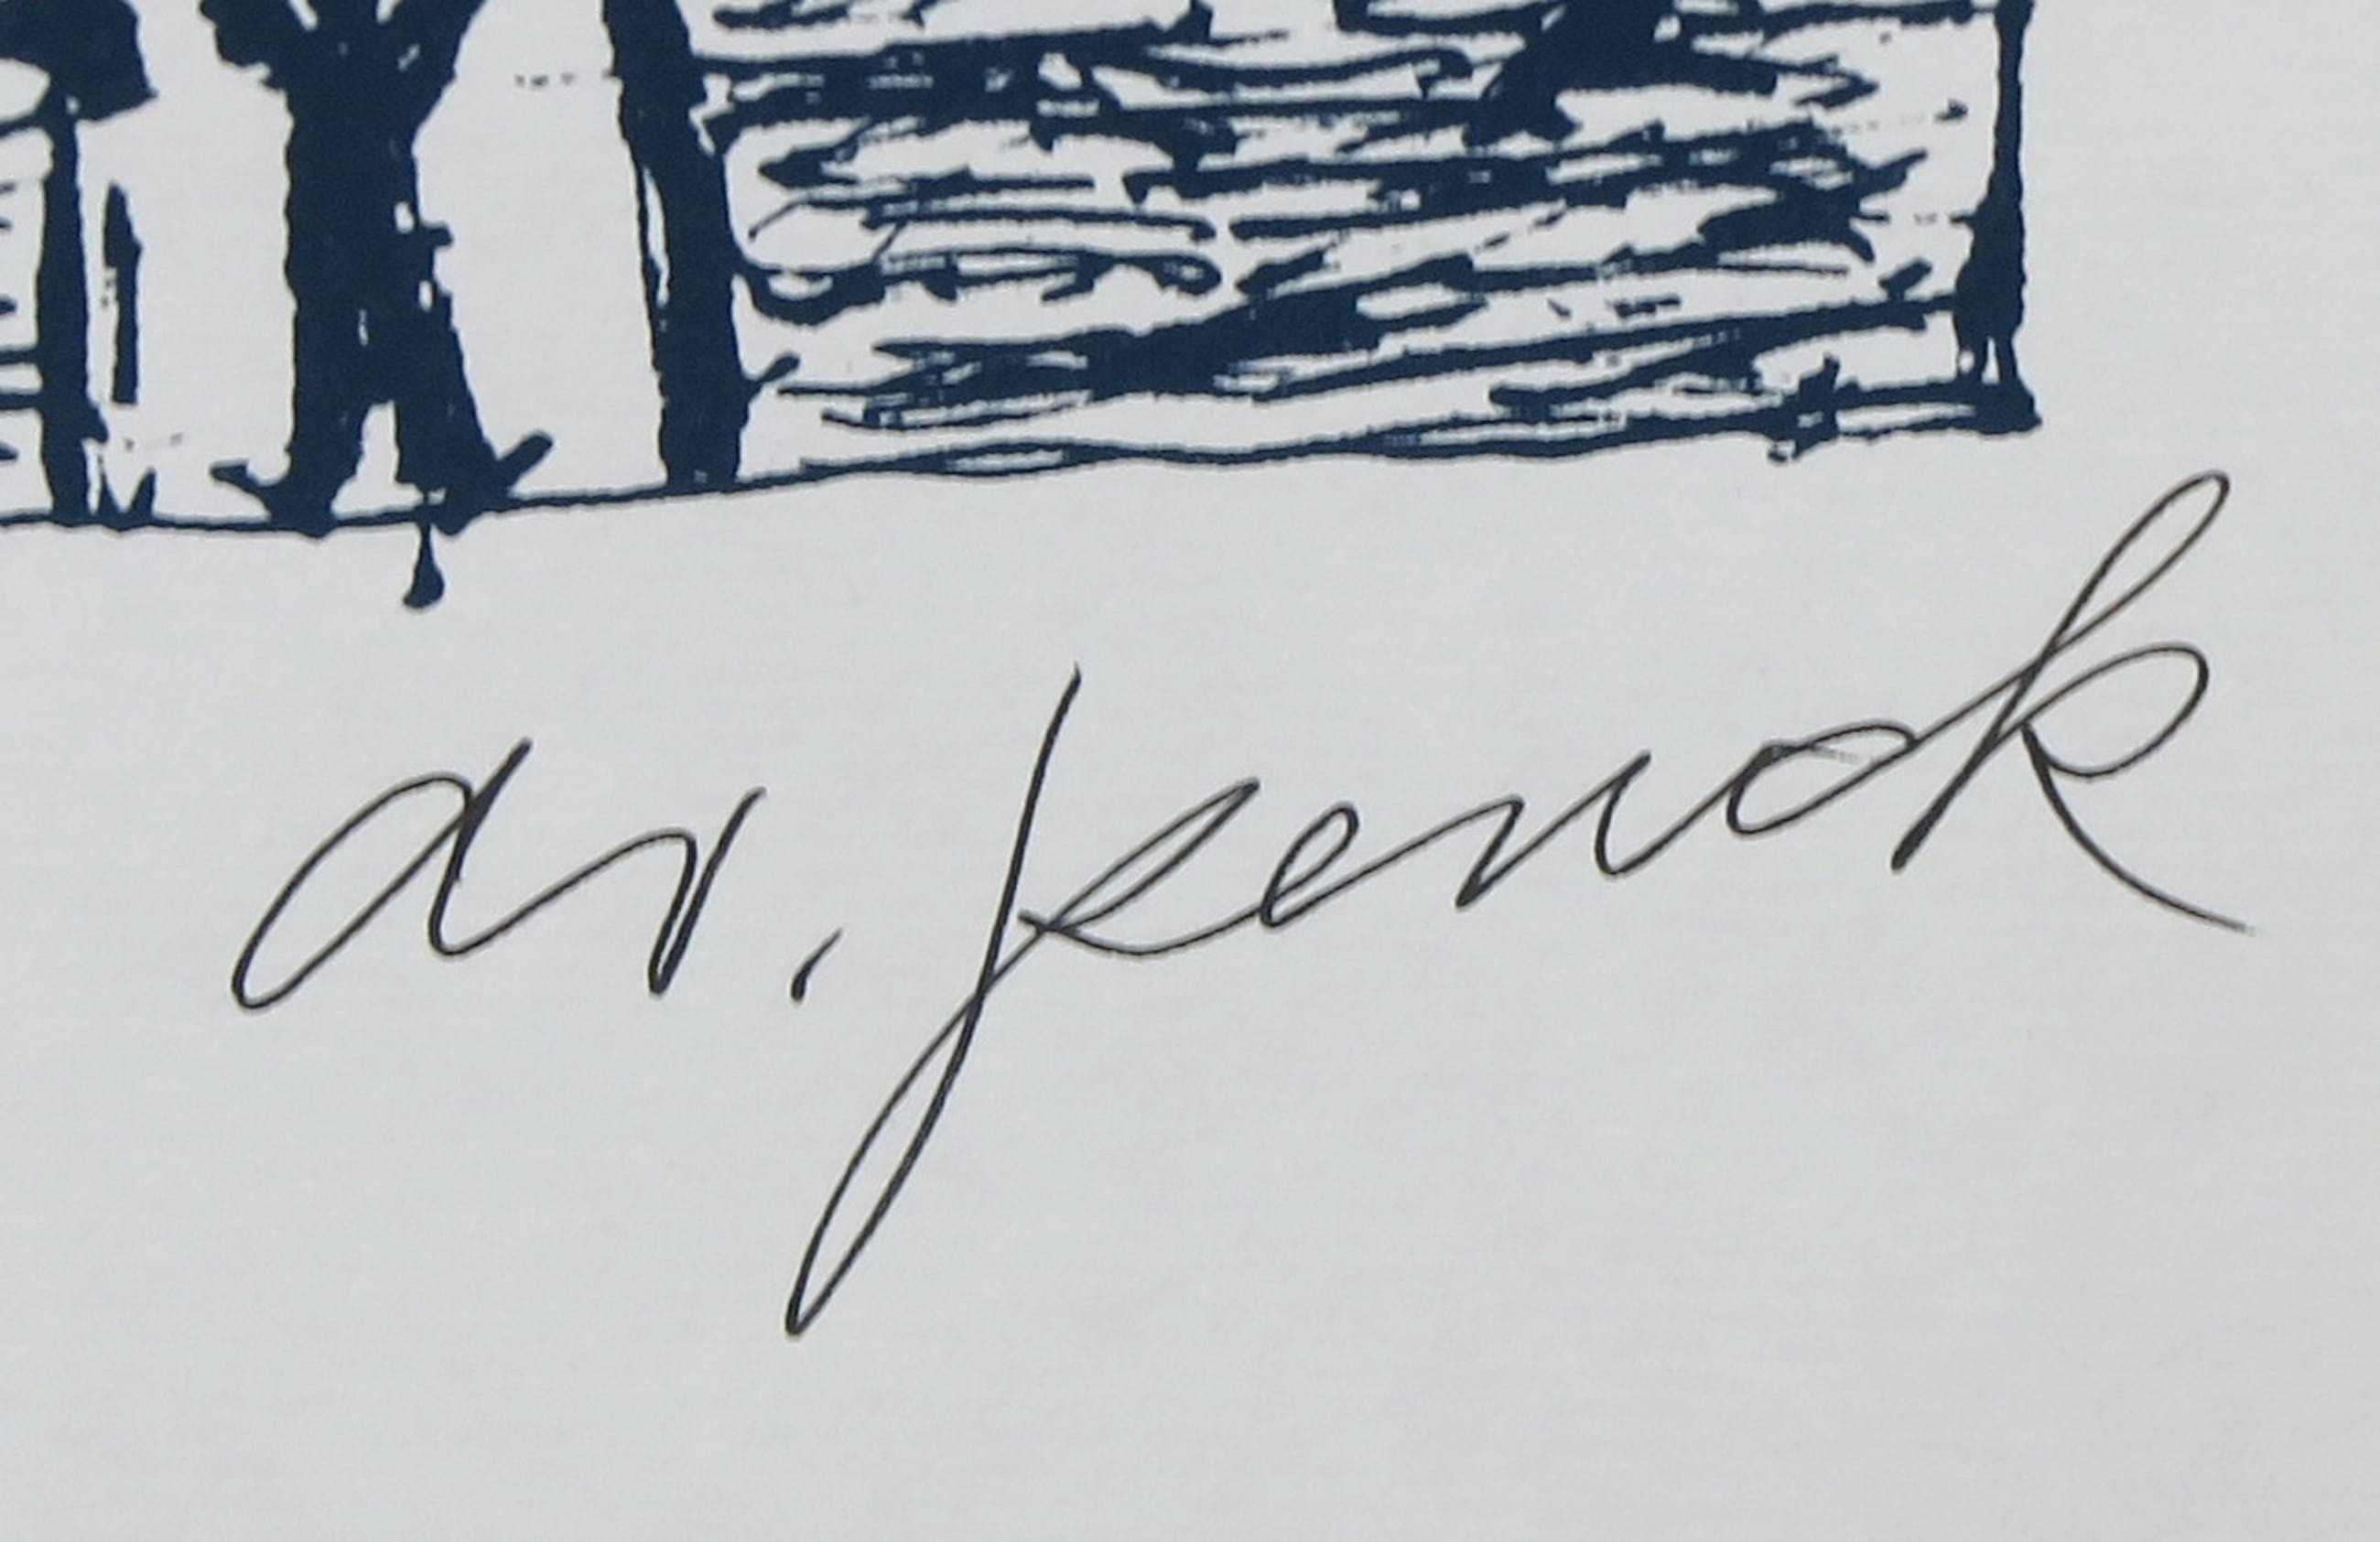 ar. penck